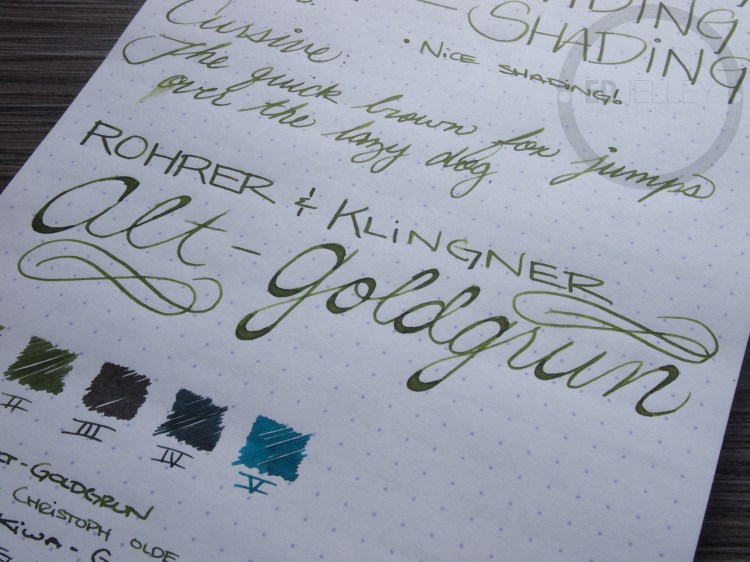 SHADING
SHADING
• NICE SHADING!
Cursive:
The quick brown fox jumps
over the lazy dog.
ED JELLEY
ROHRER & KLINGNER
alt-goldgrun
II III IV V
-GOLDGRUN
CHRISTOPH OLDE
KIWA-G